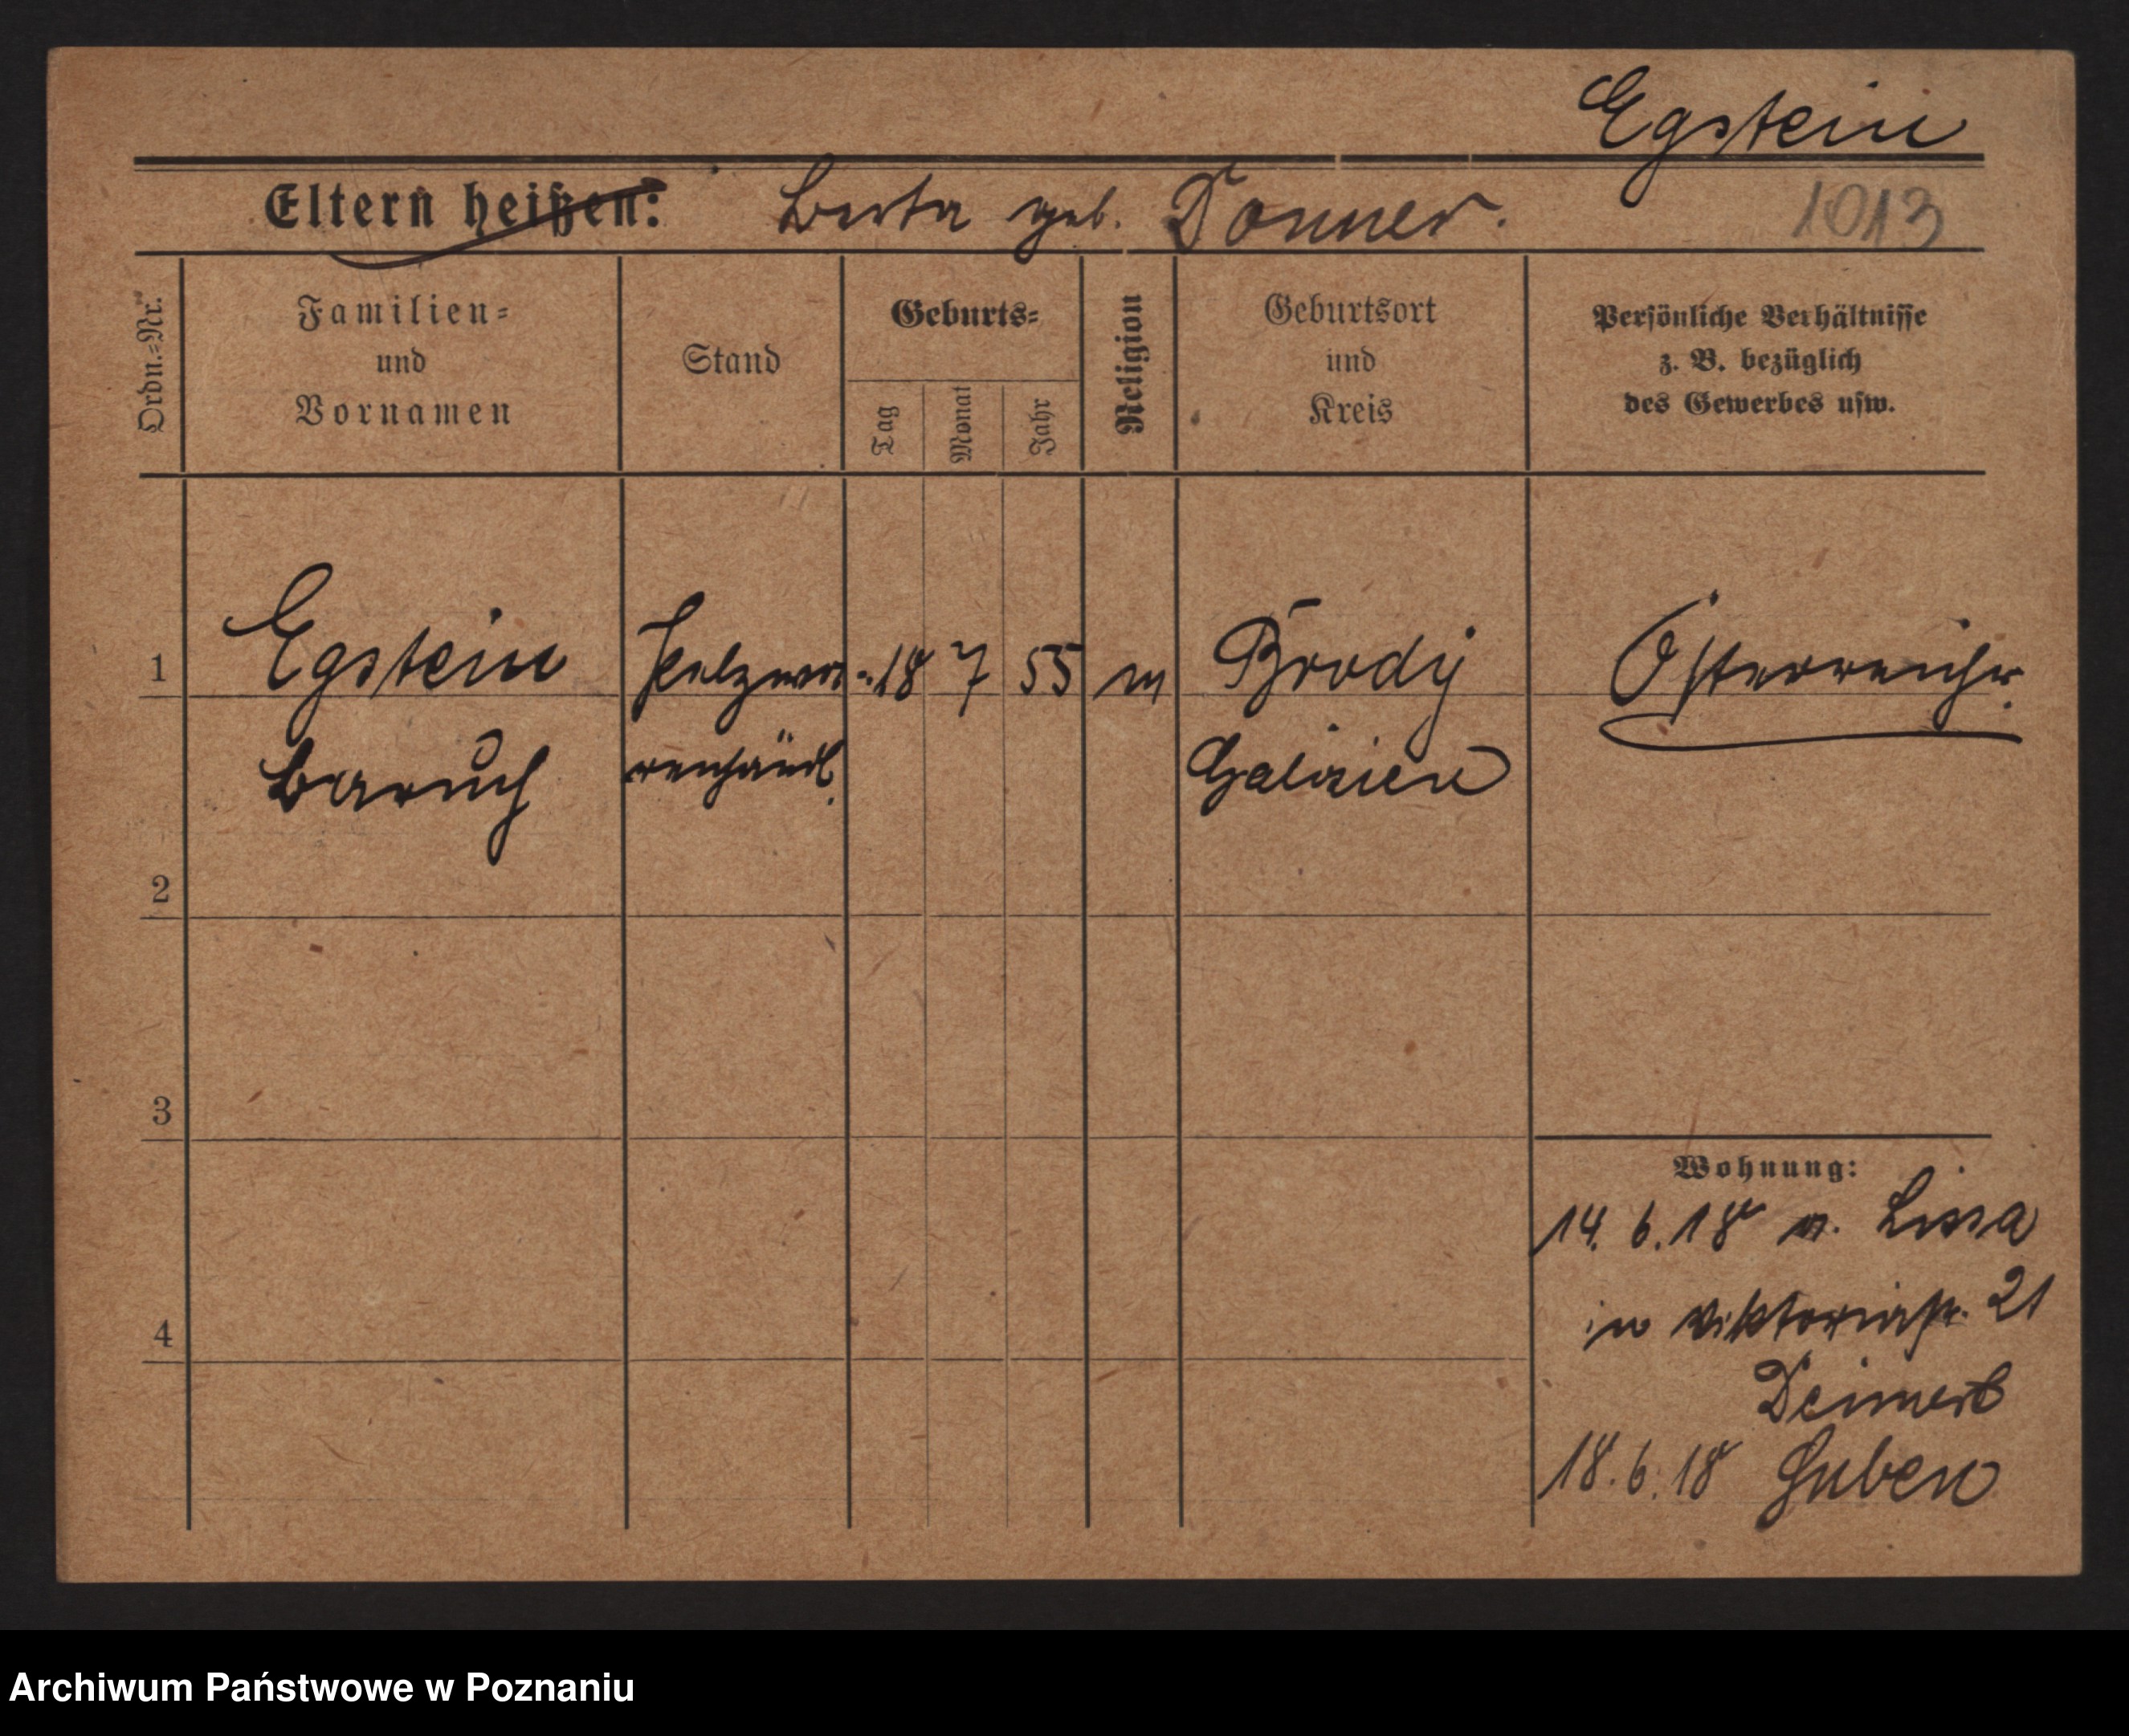 Egstein
Eltern heißen: Berta geb. Donner.
1013
Ordn.=Nr.
Familien=
und
Vornamen
Stand
Geburts=
Tag
Monat
Jahr
Religion
Geburtsort
und
Kreis
Persönliche Verhältnisse
z. B. bezüglich
des Gewerbes usw.
1
Egstein Pelzwa= 18 7 55 m Brody Österreicher
Baruch renhändl. Galizien
2
3
4
Wohnung:
14. 6. 18 v. Lissa
in Viktoriastr. 21
18. 6. 18 Guben
Archiwum Państwowe w Poznaniu